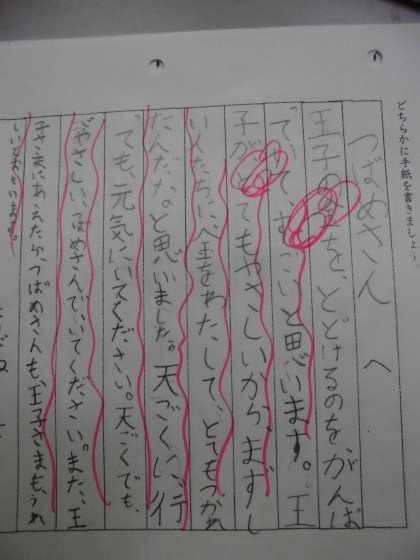 どちらかに手紙を書きましょう。
つばめさん へ
王子の を、とどけるのを、がんば
っていて すごいと思います。王
子が、とてもやさしいから、まずし
い人たちに、宝をわたして、とてもつかれ
たんだなと思いました。天ごくに、行
っても、元気にいてください。天ごくでも、
やさしい、つばめさんでいてください。また、王
子さまにあえたら、つばめさんも、王子さまもうれ
しいとおもいます。